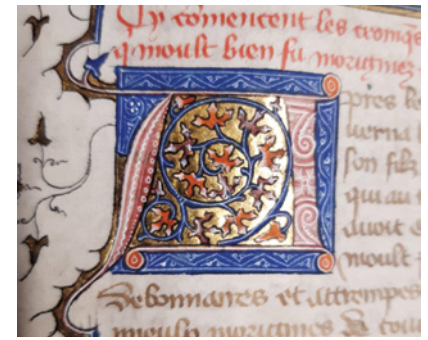 Cy comencent les croniqs
q moult bien fu morigines
Apres le
uerna
son filz
qui au
auoit
moult
Debonnaires et attrempes
mieulx morigines